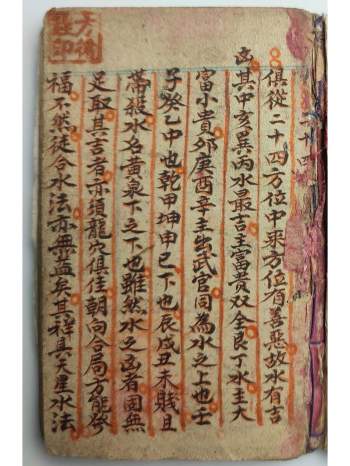 俱從二十四方位中來方位有善惡故水有吉
凶其中亥巽丙水最吉主富貴双全艮丁水主大
富小貴卯庚酉辛主出武官同為水之上也壬
子癸乙中也乾甲坤申巳下也辰戌丑未賤且
帶殺水名黃泉下之下也雖然水之凶者固無
足取其吉者亦須龍穴俱佳朝向合局方能發
福不然徒合水法亦無益矣其詳具天星水法